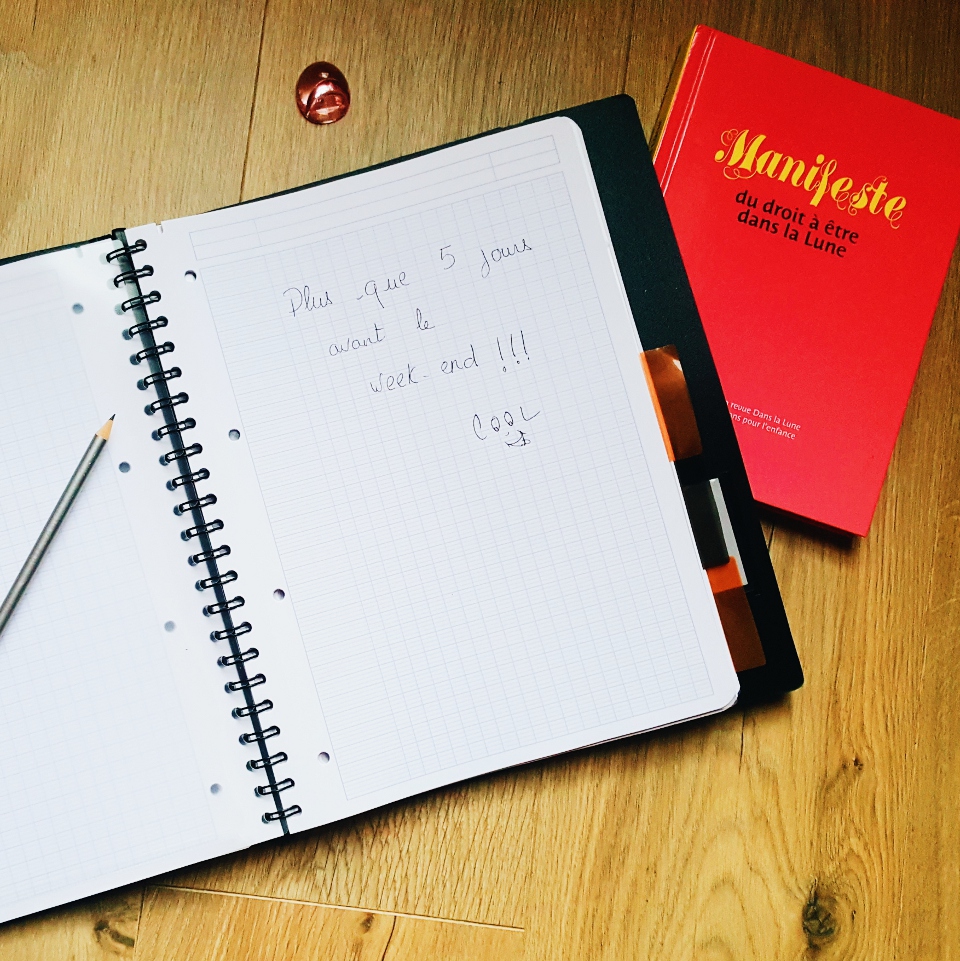 Plus que 5 jours
avant le
week-end !!!
COOL
Manifeste
du droit à être
dans la Lune
revue Dans la Lune
pour l'enfance